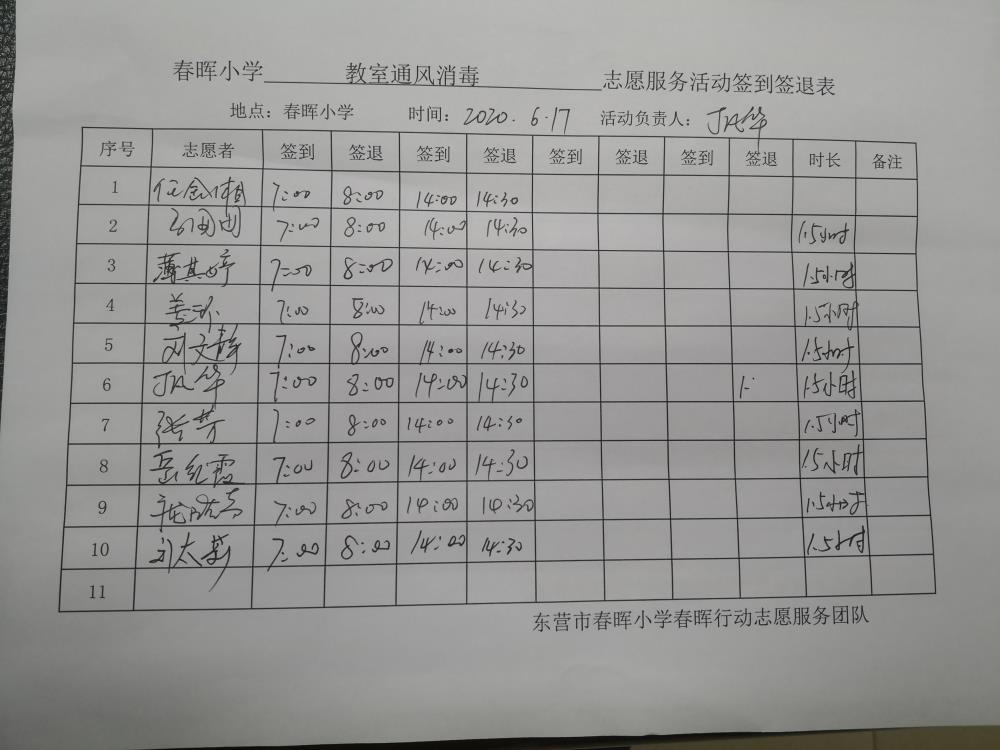 春晖小学 教室通风消毒 志愿服务活动签到签退表
地点：春晖小学 时间：2020.6.17 活动负责人：丁凡华
序号 志愿者 签到 签退 签到 签退 签到 签退 签到 签退 时长 备注
1 7:00 8:00 14:00 14:30
2 7:00 8:00 14:00 14:30 1.5小时
3 薄其婷 7:00 8:00 14:00 14:30 1.5小时
4 7:00 8:00 14:00 14:30 1.5小时
5 刘文静 7:00 8:00 14:00 14:30 1.5小时
6 丁凡华 7:00 8:00 14:00 14:30 1.5小时
7 张芳 7:00 8:00 14:00 14:30 1.5小时
8 岳红霞 7:00 8:00 14:00 14:30 1.5小时
9 7:00 8:00 14:00 14:30 1.5小时
10 7:00 8:00 14:00 14:30 1.5小时
11
东营市春晖小学春晖行动志愿服务团队